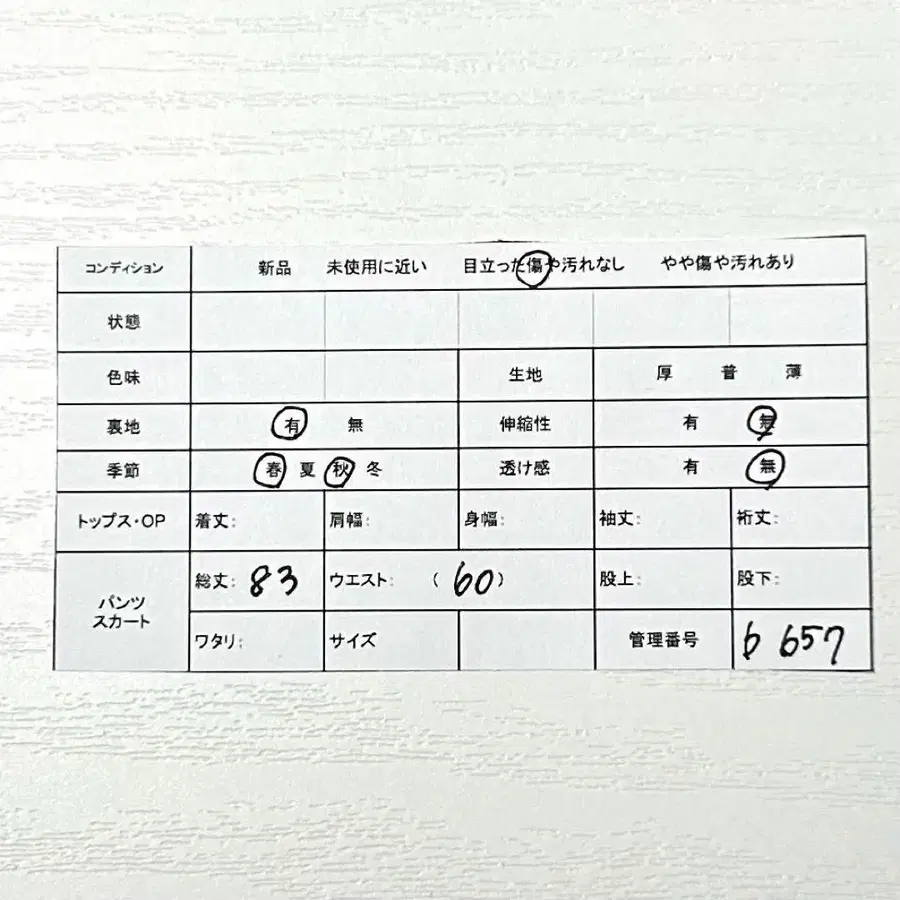 コンディション 新品 未使用に近い 目立った傷や汚れなし やや傷や汚れあり
状態
色味 生地 厚 普 薄
裏地 有 無 伸縮性 有 無
季節 春 夏 秋 冬 透け感 有 無
トップス・OP 着丈: 肩幅: 身幅: 袖丈: 裄丈:
パンツ スカート 総丈: 83 ウエスト: (60) 股上: 股下:
ワタリ: サイズ 管理番号 b 657